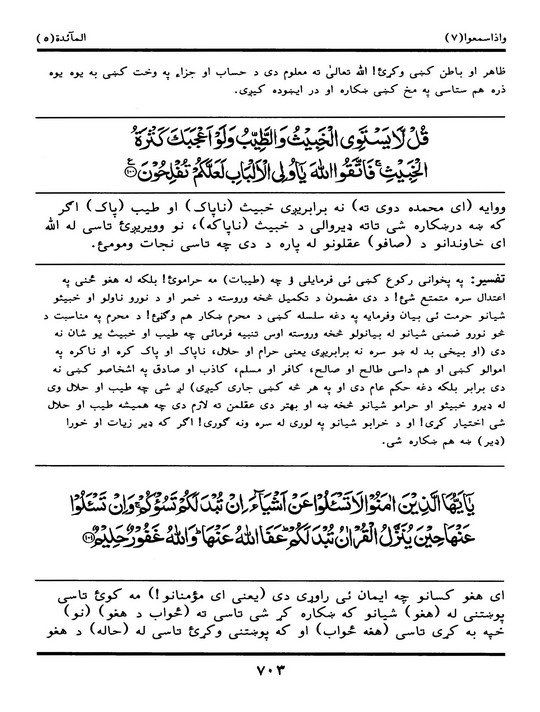 واذاسمعوا(٧)
المآئدة(٥)
ظاهر او باطن كښې وكړئ! الله تعالىٰ ته معلوم دى د حساب او جزاء په وخت كښې به يوه يوه
ذره هم ستاسې په مخ كښې ښكاره او در ايښوده كيږى.
قُلْ لَّا يَسْتَوِى الْخَبِيْثُ وَالطَّيِّبُ وَلَوْ اَعْجَبَكَ كَثْرَةُ
الْخَبِيْثِ ۚ فَاتَّقُوا اللّٰهَ يٰٓاُولِى الْاَلْبَابِ لَعَلَّكُمْ تُفْلِحُوْنَ ﴿١٠٠﴾ ع
ووايه (اى محمده دوى ته) نه برابريږى خبيث (ناپاك) او طيب (پاك) اګر
كه ښه درښكاره شى تاته ډيروالى د خبيث (ناپاكه)، نو وويريږئ تاسې له الله
اى خاوندانو د (صافو) عقلونو له پاره د دې چه تاسې نجات ومومئ.
تفسير: په پخوانى ركوع كښې ئې فرمايلى ؤ چه (طيبات) مه حراموئ! بلكه له هغو ځنې په
اعتدال سره متمتع شئ! د دې مضمون د تكميل څخه وروسته د خمر او د نورو ناولو او خبيثو
شيانو حرمت ئې بيان وفرمايه په دغه سلسله كښې د محرم ښكار هم وګڼئ! د محرم په مناسبت د
څو نورو ضمنى شيانو له بيانولو څخه وروسته اوس تنبيه فرمائى چه طيب او خبيث يو شان نه
دى (او بيخى بد له ښو سره نه برابريږى يعنې حرام او حلال، ناپاك او پاك كړه او ناكړه په
اموالو كښې او هم داسې طالح او صالح، كافر او مسلم، كاذب او صادق په اشخاصو كښې نه
دى برابر بلكه دغه حكم عام دى او په هر څه كښې جارى كيږى) لږ شى چه طيب او حلال وى
له ډيرو خبيثو او حرامو شيانو څخه ښه او بهتر دى عقلمن ته لازم دى چه هميشه طيب او حلال
شى اختيار كړى! او د خرابو شيانو په لورى له سره ونه ګورى! اګر كه ډير زيات او خورا
(ډير) ښه هم ښكاره شى.
يٰٓاَيُّهَا الَّذِيْنَ اٰمَنُوْا لَا تَسْـَٔلُوْا عَنْ اَشْيَآءَ اِنْ تُبْدَ لَكُمْ تَسُؤْكُمْ ۚ وَاِنْ تَسْـَٔلُوْا
عَنْهَا حِيْنَ يُنَزَّلُ الْقُرْاٰنُ تُبْدَ لَكُمْ ؕ عَفَا اللّٰهُ عَنْهَا ؕ وَاللّٰهُ غَفُوْرٌ حَلِيْمٌ ﴿١٠١﴾
اى هغو كسانو چه ايمان ئې راوړى دى (يعنې اى مؤمنانو!) مه كوئ تاسې
پوښتنې له (هغو) شيانو كه ښكاره كړ شى تاسې ته (ځواب د هغو) (نو)
خپه به كړى تاسې (هغه ځواب) او كه پوښتنې وكړئ تاسې له (حاله) د هغو
٧٠٣